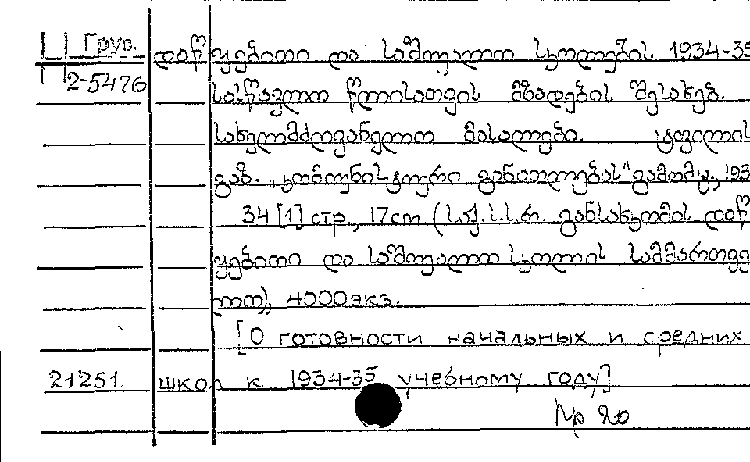 Груз. დაწყებითი და საშუალო სკოლების 1934-35
2-5476 სასწავლო წლისათვის მზადების შესახებ.
სახელმძღვანელო მასალები. ტფილისი
გაზ. „კომუნისტური განათლების" გამომც., 193
34 [1] стр., 17cm (საქ.ს.ს.რ. განსახკომის დაწ
ყებითი და საშუალო სკოლის სამმართვე
ლო), 4000 экз.
[О готовности начальных и средних
21251. школ к 1934-35 учебному году]
Пр 20